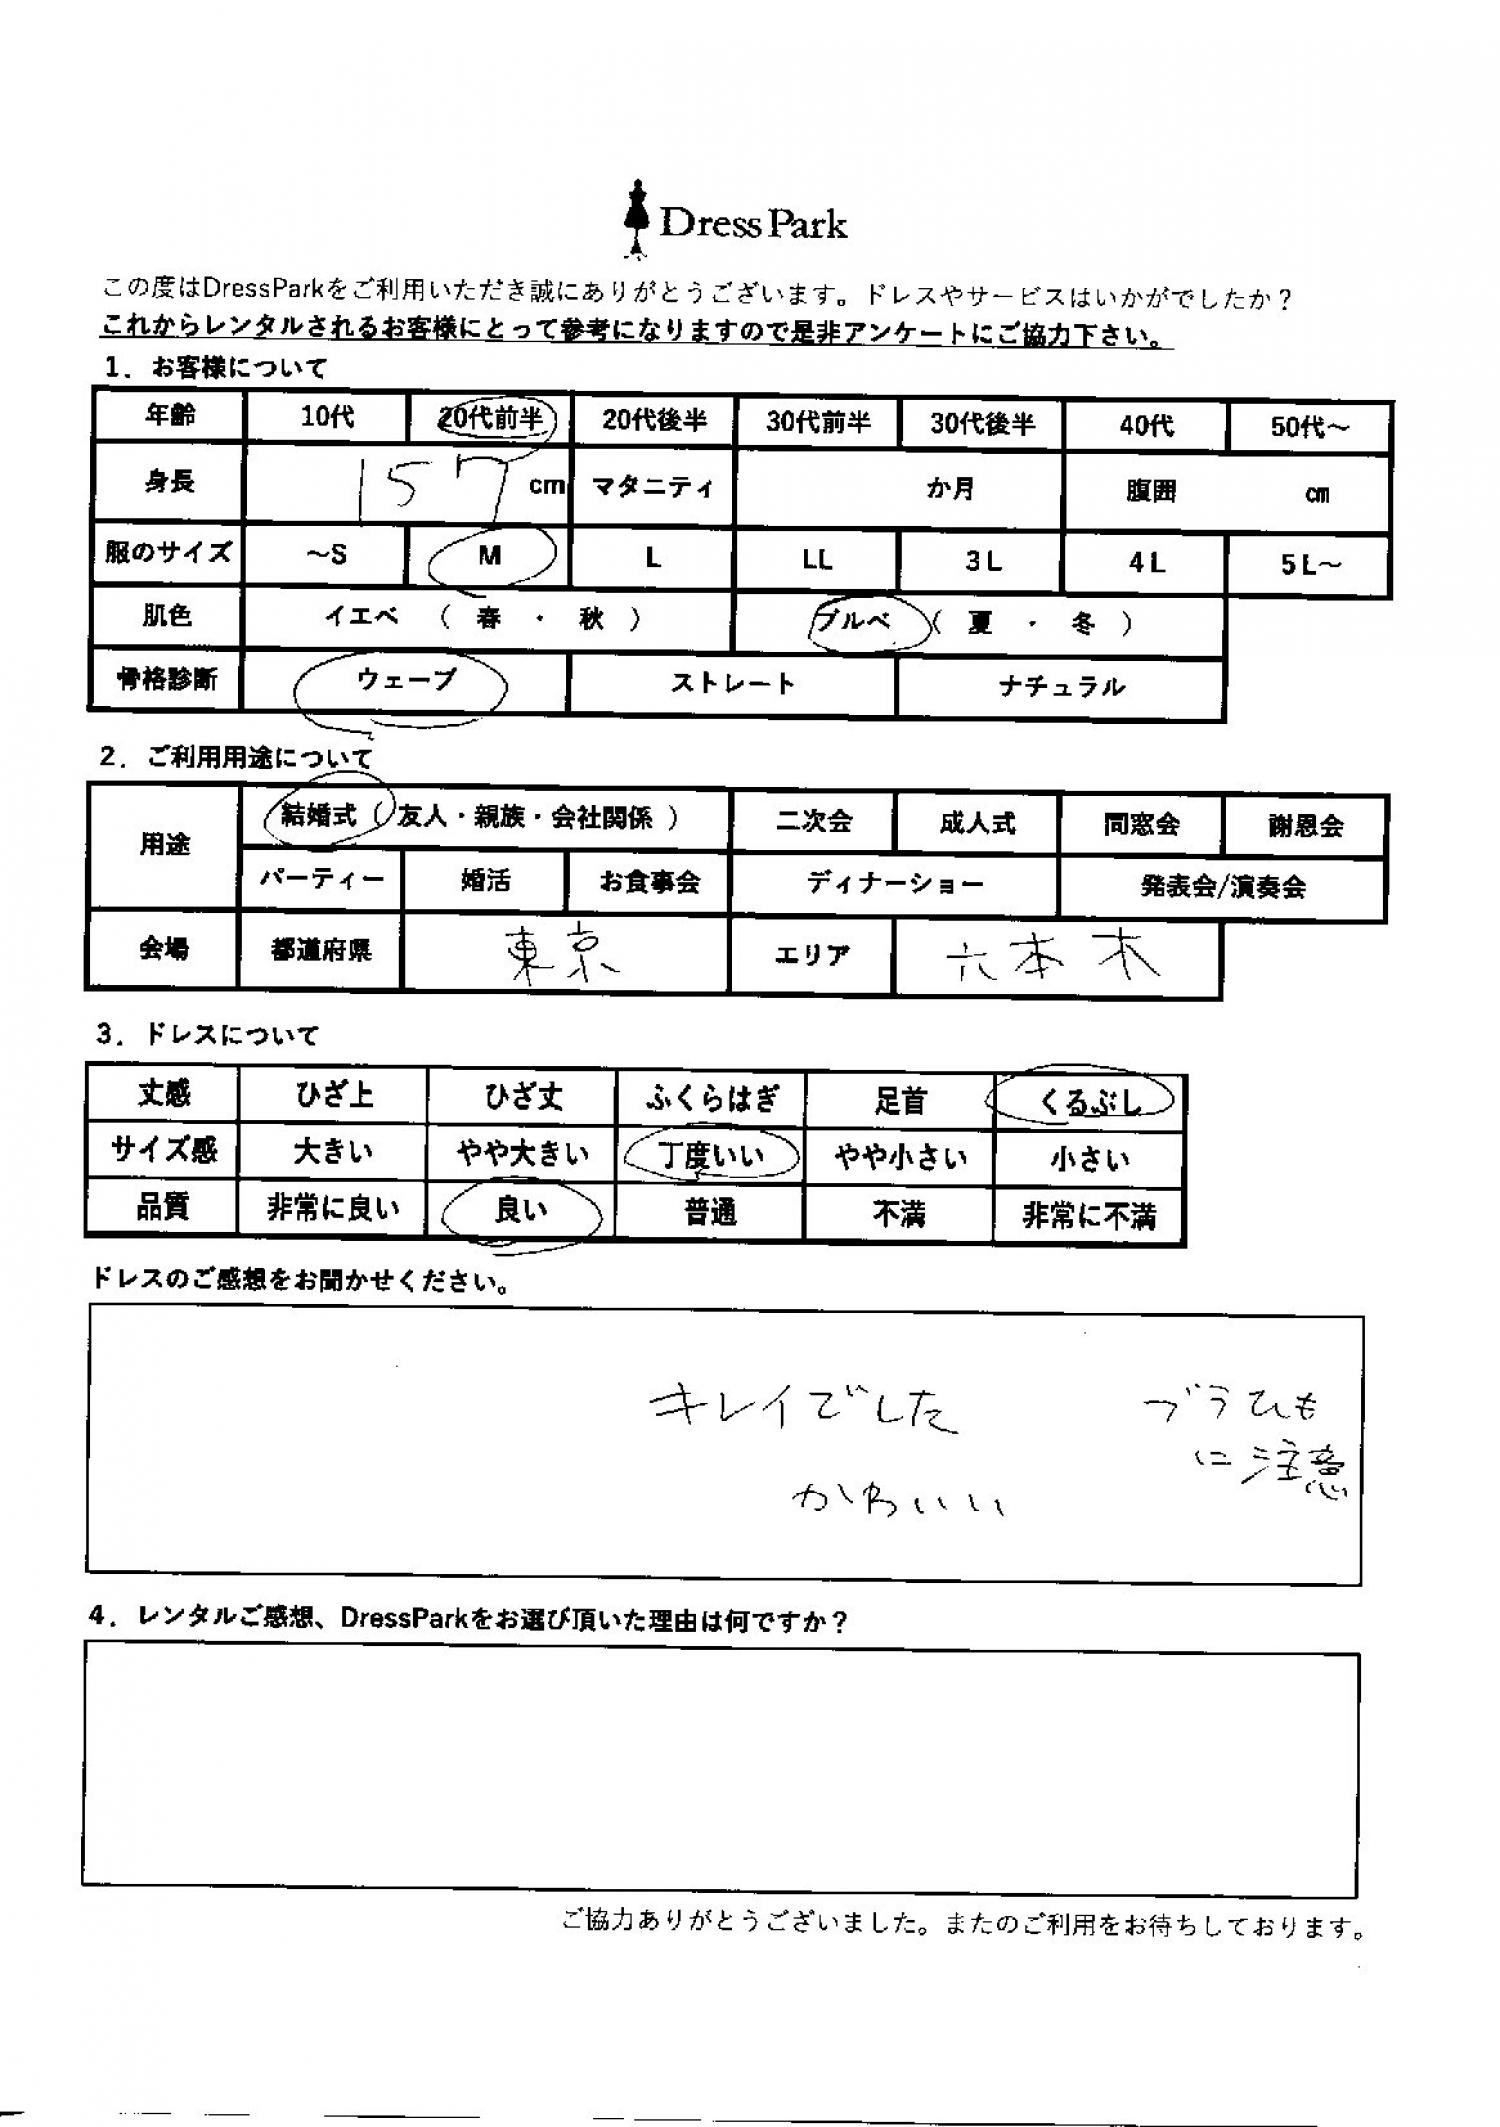 Dress Park
この度はDressParkをご利用いただき誠にありがとうございます。ドレスやサービスはいかがでしたか？
これからレンタルされるお客様にとって参考になりますので是非アンケートにご協力下さい。
1．お客様について
年齢 10代 20代前半 20代後半 30代前半 30代後半 40代 50代～
身長 157 cm マタニティ か月 腹囲 ㎝
服のサイズ ～S M L LL 3L 4L 5L～
肌色 イエベ （ 春 ・ 秋 ） ブルベ （ 夏 ・ 冬 ）
骨格診断 ウェーブ ストレート ナチュラル
2．ご利用用途について
用途 結婚式（友人・親族・会社関係） 二次会 成人式 同窓会 謝恩会
パーティー 婚活 お食事会 ディナーショー 発表会/演奏会
会場 都道府県 東京 エリア 六本木
3．ドレスについて
丈感 ひざ上 ひざ丈 ふくらはぎ 足首 くるぶし
サイズ感 大きい やや大きい 丁度いい やや小さい 小さい
品質 非常に良い 良い 普通 不満 非常に不満
ドレスのご感想をお聞かせください。
キレイでした
かわいい
ブラひも
に注意
4．レンタルご感想、DressParkをお選び頂いた理由は何ですか？
ご協力ありがとうございました。またのご利用をお待ちしております。